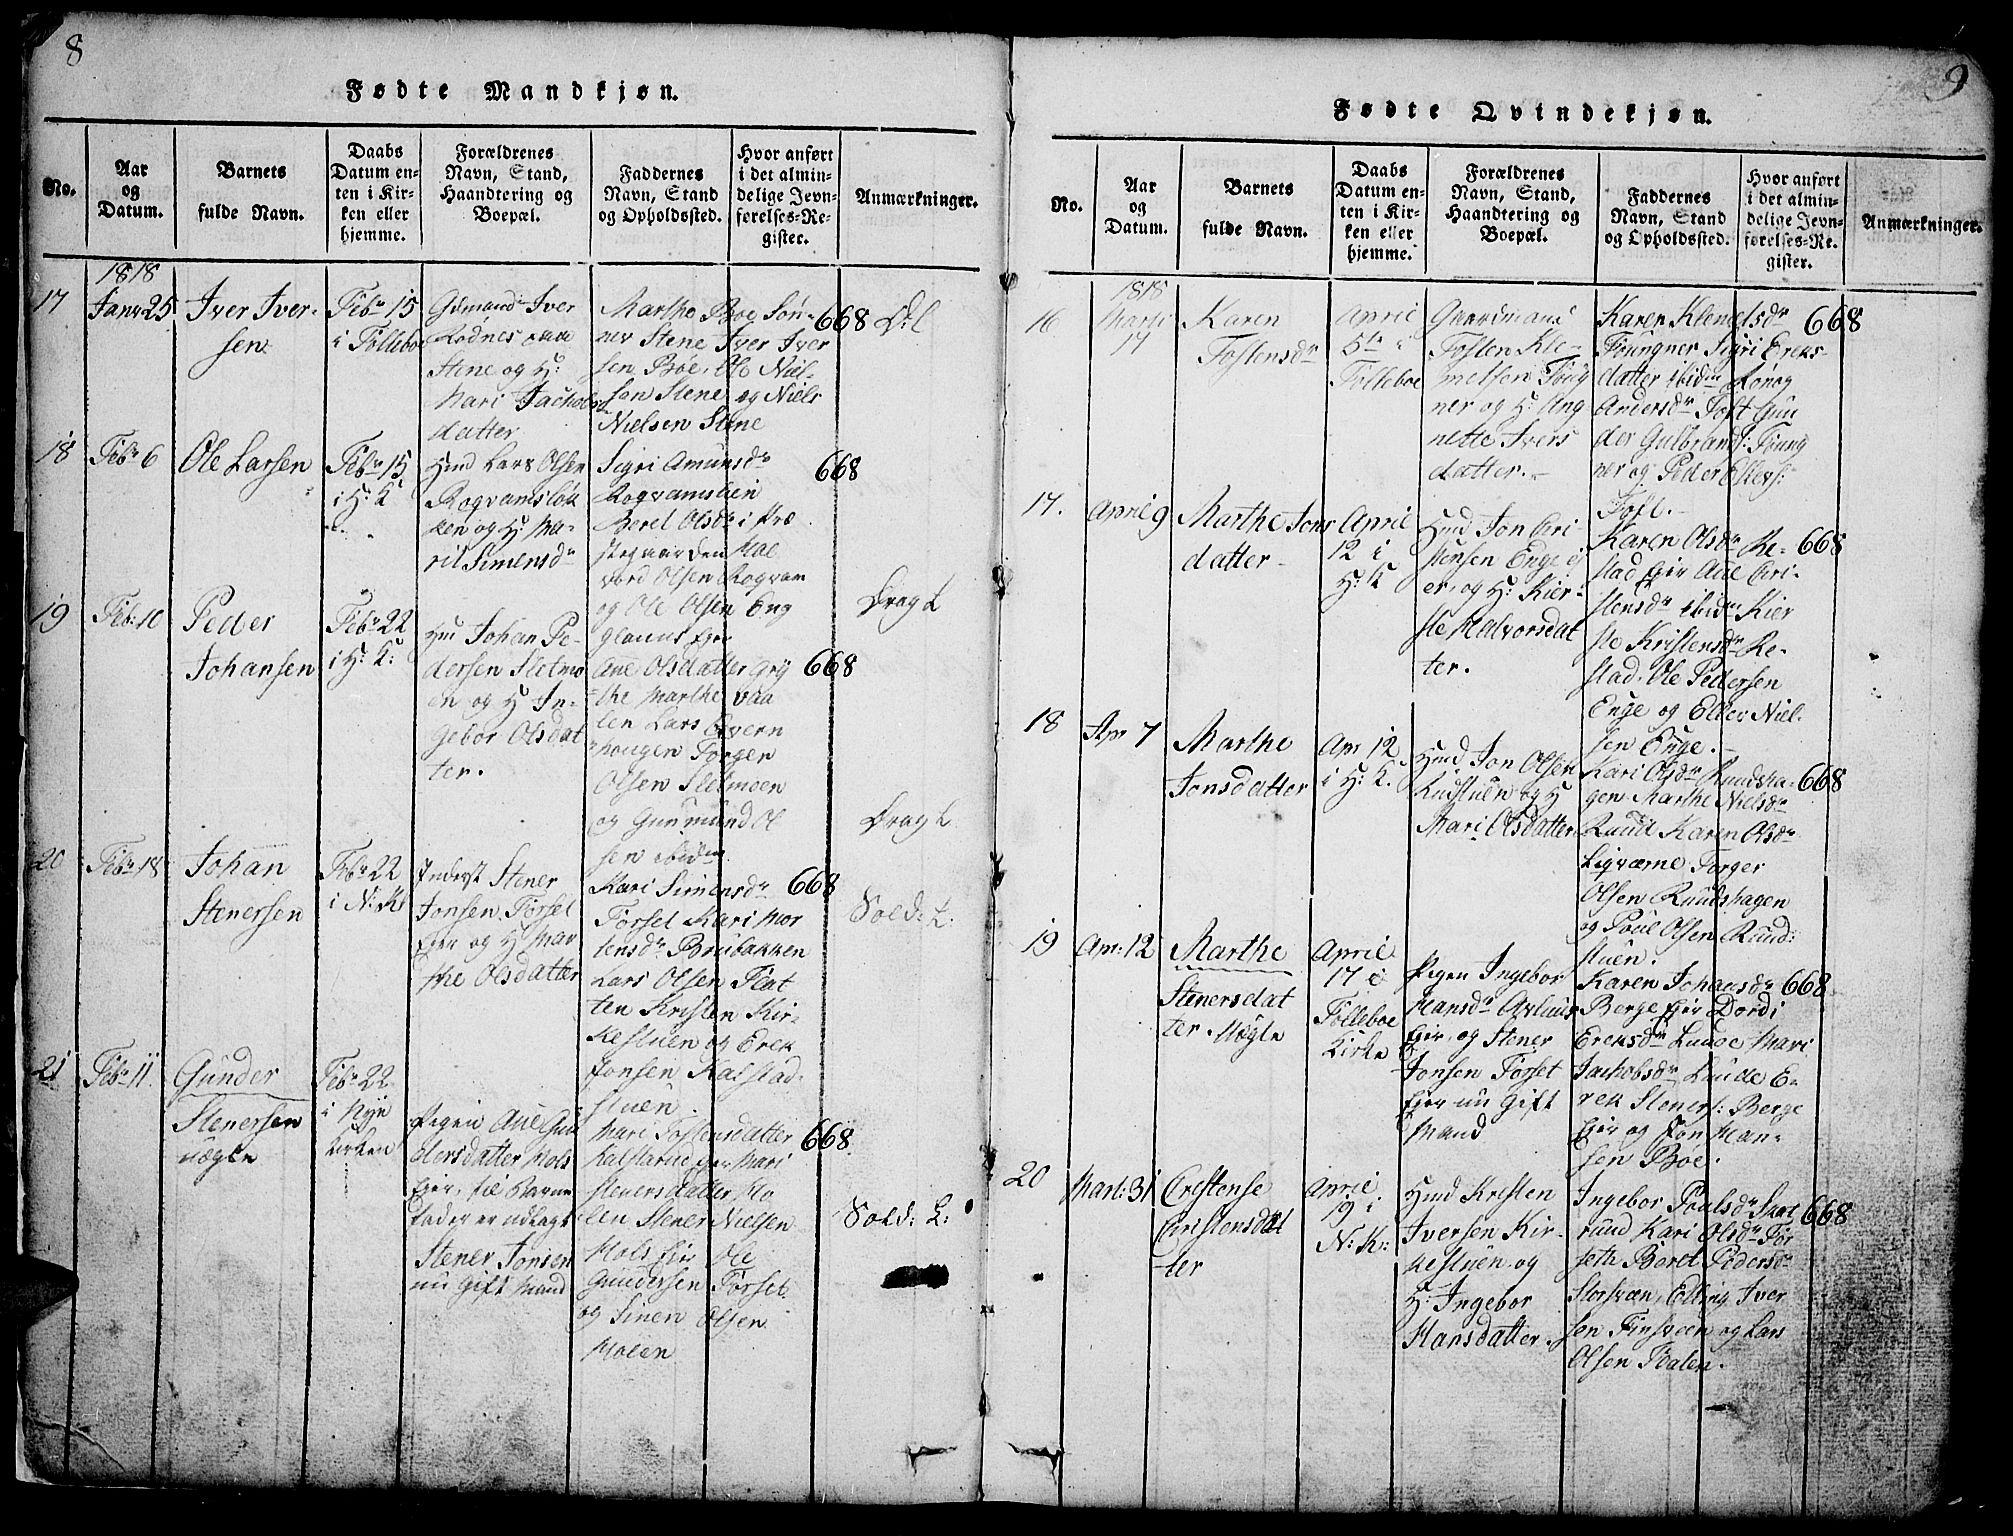 8
Fødte Mandkjøn.
No.
Aar
og
Datum.
Barnets
fulde Navn.
Daabs
Datum en-
ten i Kir-
ken eller
hjemme.
Forældrenes
Navn, Stand,
Haandtering og
Boepæl.
Faddernes
Navn, Stand
og Opholdssted.
Hvor anført
i det almin-
delige Jevn-
førelses-Re-
gister.
Anmærkninger.
1818
17
Janv 25
Iver Iver-
sen
Febr 15
i Follebo
Gdmand Iver
Stene og H:
Mari Jachobs
datter
Marthe Boe Søn-
ner Stene Iver Iver
sen Böe, Ole Niel-
sen Stene og Niels
Nielsen Stene
668
18
Febr 6
Ole Larsen
Febr 15
i H: K
Hmd Lars Olsen
Rogvamsløk
ken og H: Ma-
rit Simensdr
Sigri Amunsdr
Rogvamslien
Beret Olsdr i Præ
stegaarden Hal
vord Olsen Rogvam
og Ole Olsen Eng
668
19
Feb: 10
Peder
Johansen
Febr 22
i H: K:
Hm Johan Pe-
dersen Sletmo
en og H In-
gebor Olsdat
ter.
Ane Olsdatter Gry
the Marthe Vaa
len Lars Qvern
hougen Torger
Olsen Sletmoen
og Gunmund Ol
sen ibidm
668
Drag L
20
Febr 18
Johan
Stenersen
Febr 22
i N: K:
Inderst Stener
Jonsen Forset
Ejer og H Mar
the Olsdatter
Mari Simensdr
Forset Kari Mor
tensdr Brubakken
Lars Olsen Flat
ten Kristen Kir-
kestuen og Erek
Jonsen Kalstad-
stuen.
668
Drag L
Sold: L:
21
Febr 11.
Gunder
Stenersen
uægte
Febr 22
i Nye
kirken
Pigen Ane Gun
dersdatter Hols
Ejer, til Barne
fader er udlagt
Stener Jonsen
nu Gift Mand
Mari Tostensdatter
Kalstad Ejer Mari
Stenersdatter Ho
len Stener Nielsen
Hols Eje Ole
Gundersen Forset
og Simen Olsen
Holen
668
Sold: L:
9
Fødte Qvindekjøn.
No.
Aar
og
Datum.
Barnets
fulde Navn.
Daabs
Datum en-
ten i Kir-
ken eller
hjemme.
Forældrenes
Navn, Stand,
Haandtering og
Boepæl.
Faddernes
Navn, Stand
og Opholdssted.
Hvor anført
i det almin-
delige Jevn-
førelses-Re-
gister.
Anmærkninger.
1818
16
Marti
17
Karen
Tostensdr
April
5te i
Folleboe
Gaardmand
Tosten Kle-
metsen Foug
ner og H: Ag
nette Ivers
datter.-
Karen Klemetsdr
Foungner Sigri Ereks-
datter ibidm Rønog
Andersdr Toft Gun
der Gulbrands: Foung
ner og Peder Ellevs:
Toft.-
668
17.
April 9
Marthe Jons
datter
April
12 i
H: K
Hmd Jon Cri
stensen Enge ej
er, og H: Kier-
ste Halvorsdat
ter.
Karen Olsdr Re-
stad Ejer Ane Cri-
stensdr ibidm Kier
ste Kristensdr Re-
stad, Ole Pedersen
Enge og Eller Niel-
sen Enge.-
668
18
Apr 7
Marthe
Jonsdatter
Apr 12
i H: K.
Hmd Jon Olsen
Rudstuen og H
Mari Olsdatter
Kari Olsdr Ruudsha-
gen Marthe Nielsdr
Ruud Karen Olsdr
Ligværne Torger
Olsen Ruudshagen
og Poul Olsen Ruud-
stuen.
668
19
Apr: 12
Marthe
Stenersdat
ter Uægte
April
17 i
Folleboe
Kirke
Pigen Ingebor
Hansdr Avluns
Ejer, og Stener
Jonsen Forset
Ejer nu Gift
Mand
Karen Johansdr
Berge Ejer Dordi
Ereksdr Lunde Mari
Jachobsdr Lunde E-
rek Steners: Berge
Ejer og Jon Han-
sen Boe.
668
20
Mart: 31
Crestense
Christensdat
ter
April
19 i
N: K:
Hmd Kresten
Iversen Kir-
kestuen og
H: Ingebor
Hansdatter.
Ingebor Poulsdr Skat
rund Kari Olsdr For
seth Beret Pedersdr
Storsveen, Elling Iver
sen Finsveen og Lars
Olsen Dalen.
668